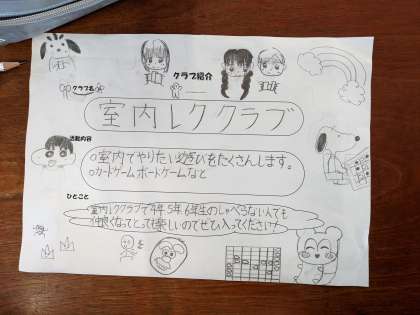 クラブ紹介
クラブ名
室内レククラブ
活動内容
○室内でやりたい遊びをたくさんします。
○カードゲームボードゲームなど
ひとこと
室内レククラブで4年5年6年生のしゃべらない人でも
仲良くなってとっても楽しいのでぜひ入ってください!